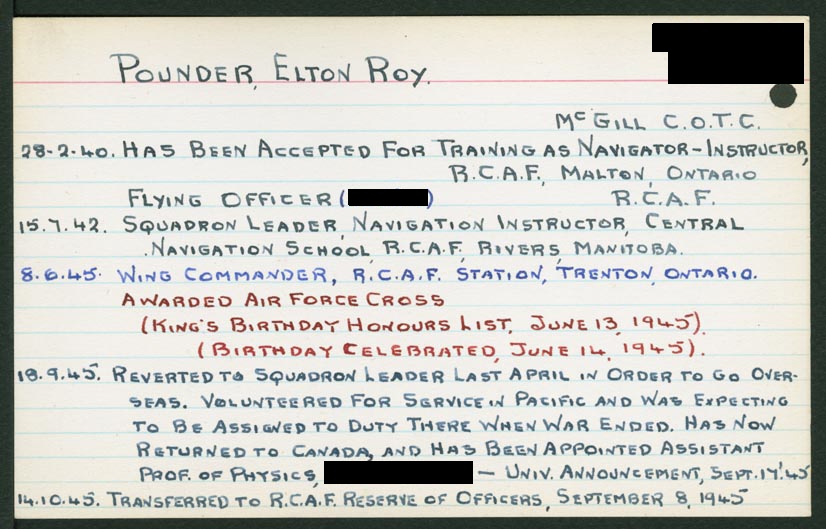 POUNDER, ELTON ROY.
McGILL C.O.T.C.
28-2-40. HAS BEEN ACCEPTED FOR TRAINING AS NAVIGATOR-INSTRUCTOR,
R.C.A.F., MALTON, ONTARIO
FLYING OFFICER ( ) R.C.A.F.
15.7.42. SQUADRON LEADER, NAVIGATION INSTRUCTOR, CENTRAL
NAVIGATION SCHOOL, R.C.A.F., RIVERS, MANITOBA.
8.6.45. WING COMMANDER, R.C.A.F. STATION, TRENTON, ONTARIO.
AWARDED AIR FORCE CROSS
(KING'S BIRTHDAY HONOURS LIST, JUNE 13, 1945).
(BIRTHDAY CELEBRATED, JUNE 14, 1945).
18.9.45. REVERTED TO SQUADRON LEADER LAST APRIL IN ORDER TO GO OVER-
SEAS. VOLUNTEERED FOR SERVICE IN PACIFIC AND WAS EXPECTING
TO BE ASSIGNED TO DUTY THERE WHEN WAR ENDED. HAS NOW
RETURNED TO CANADA, AND HAS BEEN APPOINTED ASSISTANT
PROF. OF PHYSICS, — UNIV. ANNOUNCEMENT, SEPT. 17.'45
14.10.45. TRANSFERRED TO R.C.A.F. RESERVE OF OFFICERS, SEPTEMBER 8, 1945